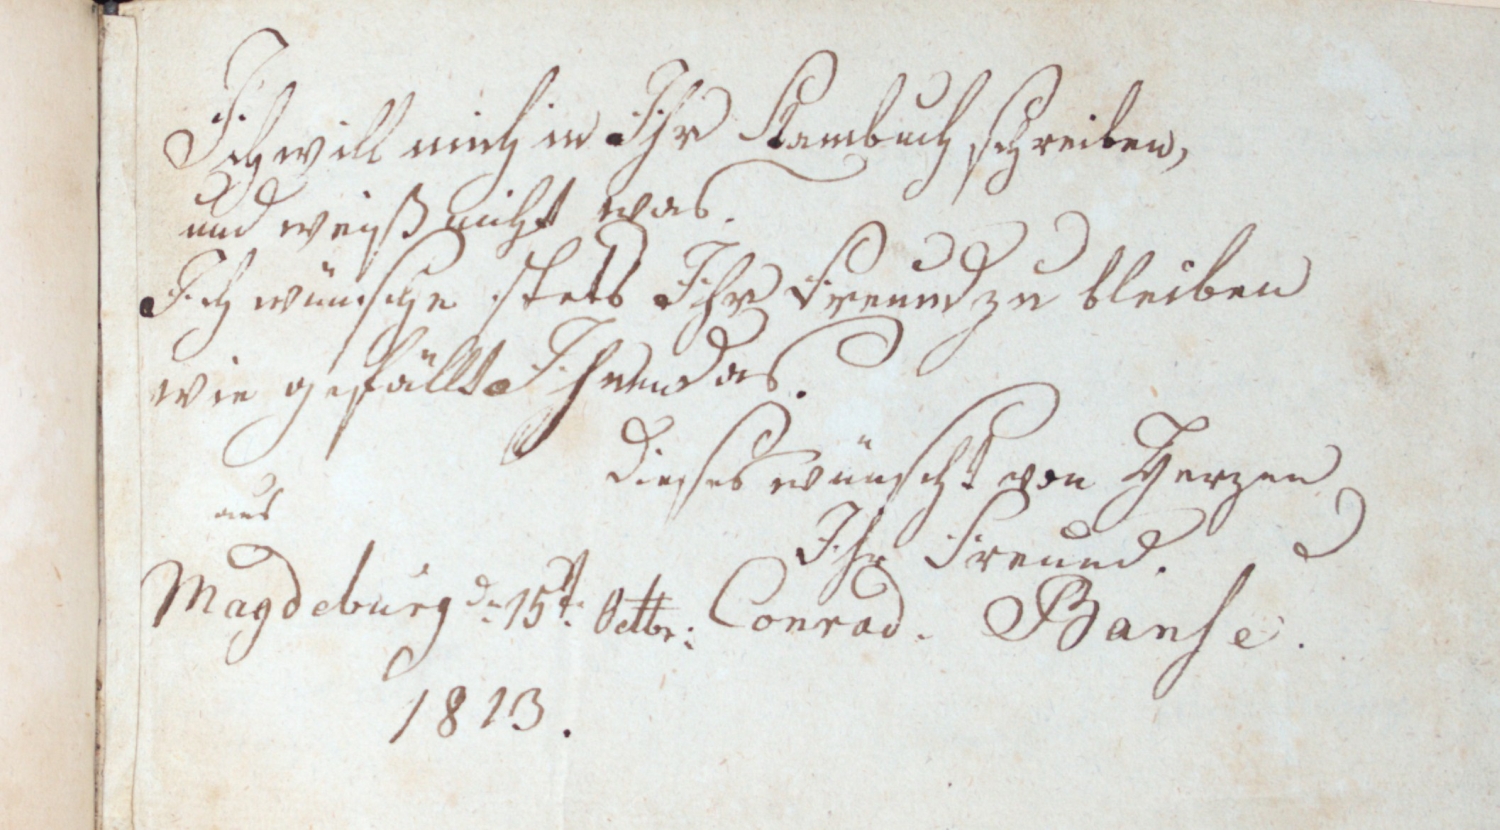 Ich will mich in Ihr Stambuch schreiben,
und weiß nicht was.
Ich wünsche stets Ihr Freund zu bleiben
wie gefällt Ihnen das.
Dieses wünscht von Herzen
Ihr Freund.
aus
Magdeburg d. 15t. Octbr: Conrad. Banse.
1813.